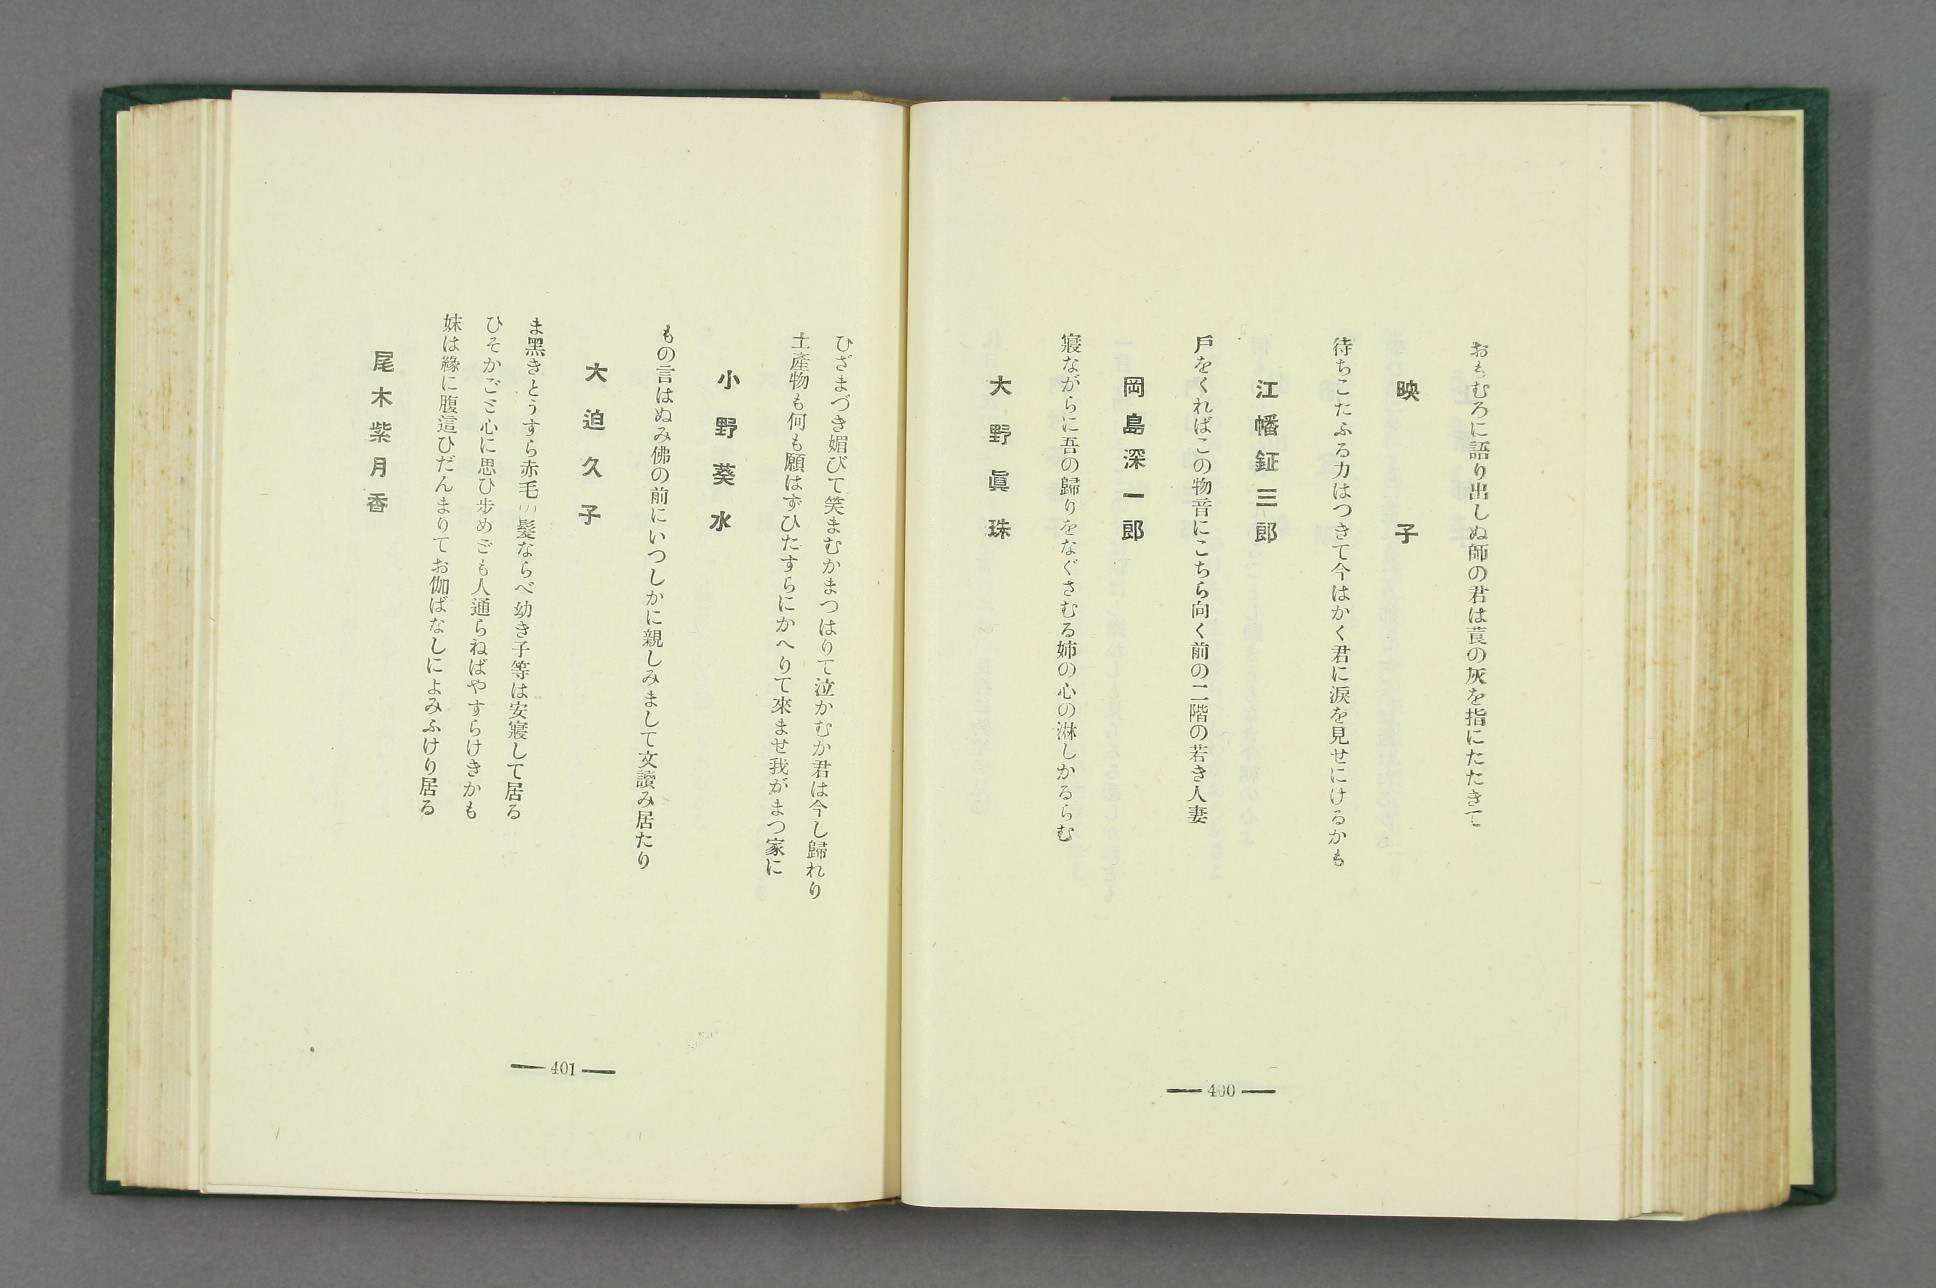 おもむろに語り出しぬ師の君は莨の灰を指にたたきて
映子
待ちこたふる力はつきて今はかく君に涙を見せにけるかも
江幡鉦三郎
戶をくればこの物音にこちら向く前の二階の若き人妻
岡島深一郎
寢ながらに吾の歸りをなぐさむる姉の心の淋しかるらむ
大野眞珠
— 400 —
ひざまづき媚びて笑まむかまつはりて泣かむか君は今し歸れり
土產物も何も願はずひたすらにかへりて來ませ我がまつ家に
小野葵水
もの言はぬみ佛の前にいつしかに親しみまして文讀み居たり
大迫久子
ま黑きとうすら赤毛の髮ならべ幼き子等は安寢して居る
ひそかごと心に思ひ歩めども人通らねばやすらけきかも
妹は緣に腹這ひだんまりてお伽ばなしによみふけり居る
尾木紫月香
— 401 —